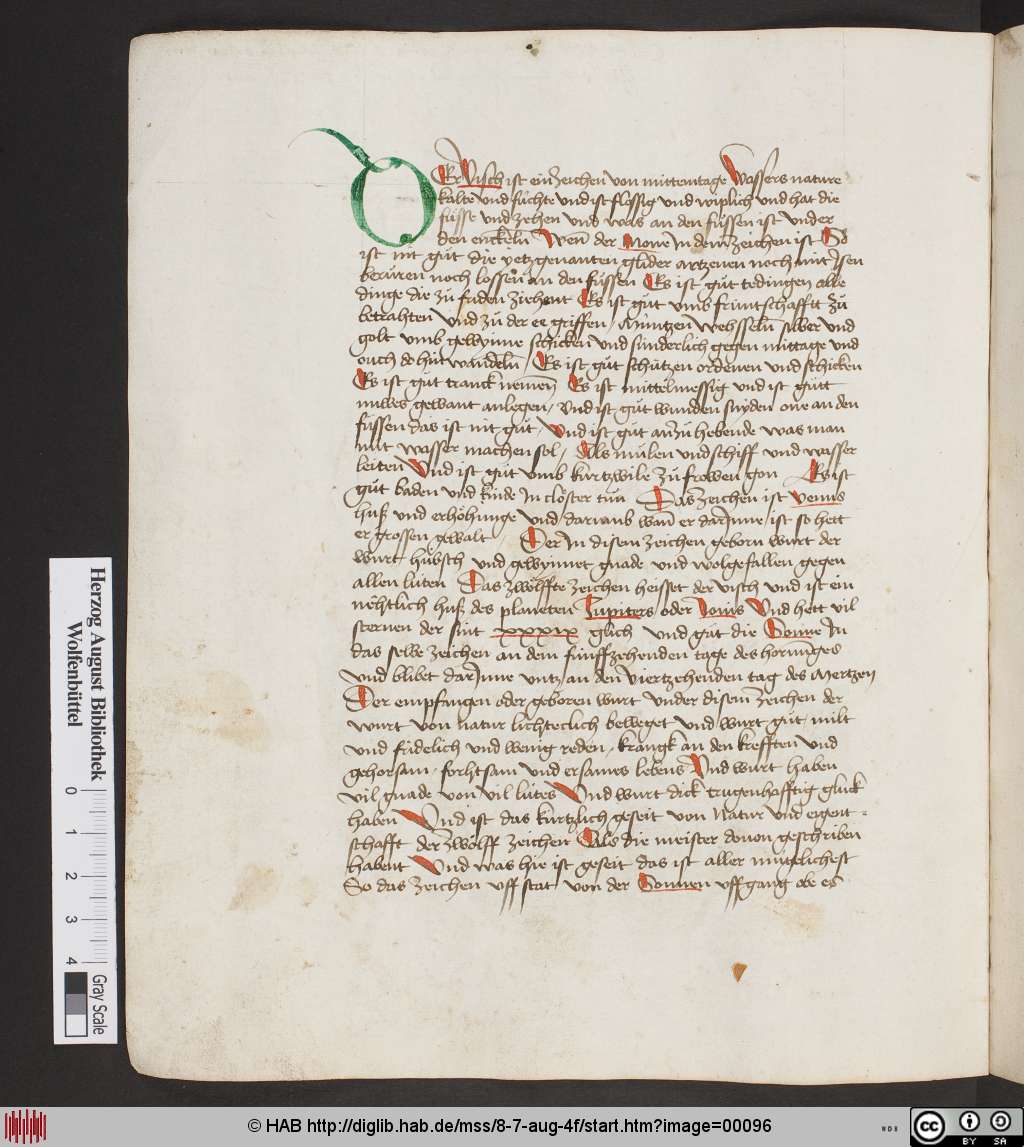 DEr Visch ist ein zeichen von mittemtage Wassers nature
kalte und fúchte und ist flossig und wiplich und hat die
fússe und zehen und was an den fússen ist under
den enckeln Wen der Mone in dem zeichen ist So
ist nit gút die yetzgenanten glider artzenen noch mit Jsen
berúren noch lossen an den fússen Es ist gút tedingen alle
dinge die zú friden ziehent Es ist gút umb frúntschafft zú
betrahten und zú der ee griffen / Múntzen wehsseln silber und
golt umb gewynne schicken und súnderlich gegen mittage und
ouch do hin wandeln / Es ist gút schútzen ordenen und schicken
Es ist gút tranck nemen Es ist mittelmessig und ist gútt
nuwes gewant anlegen / Und ist gút wunden snyden one an den
fússen das ist nit gút / Und ist gút an zú hebende was man
mit wasser machen sol / Als múlen und schiff und wasser
leiten Und ist gút umb kurtzwile zú frowen gon Es ist
gút baden und kinde in closter tún Das zeichen ist venus
huß und erhóhunge und darumb wan er dar Inne ist so hett
er grossen gewalt Der In disem zeichen geborn wurt der
wurt húbsch und gewynnet gnade und wolgefallen gegen
allen lúten Das zwólffte zeichen heisset der visch und ist ein
nehtlich huß des planeten Jupiters oder Jouis Und hett vil
sternen der sint xxxix glich und gat die Sonne In
das selbe zeichen an dem fúnffzehenden tage des hornunges
und blibet dar Inne untz an den viertzehenden tag des Mertzen
Der empfangen oder geboren wurt under disem zeichen der
wurt von natur lichteclich beweget und wurt gút milt
und fridelich und wenig reden / krangk an den krefften und
gehorsam / forhtsam und ersames lebens Und wurt haben
vil gnade von vil lútes Und wurt dick trugenhafftig gluck
haben Und ist das kúrtzlich geseit von Natur und eigent-
schafft der zwólff zeichen Als die meister douon geschriben
habent Und was hie ist geseit das ist aller mugelichest
So das zeichen uff stat von der Sonnen uffgang obe es
Herzog August Bibliothek
Wolfenbüttel
0 1 2 3 4
Gray Scale
© HAB http://diglib.hab.de/mss/8-7-aug-4f/start.htm?image=00096
WDB
cc
BY SA